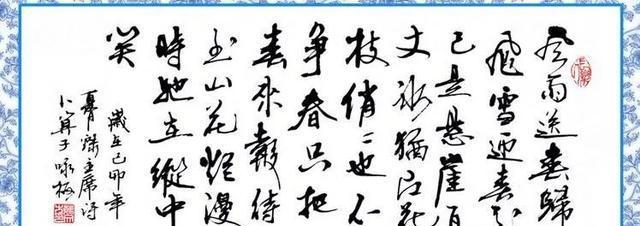 風雨送春歸
飛雪迎春到
已是悬崖百
丈冰犹有花
枝俏〻也不
争春只把
春來報待
到山花烂漫
時她在叢中
笑
歲在己卯年
主席诗
卜算子咏梅